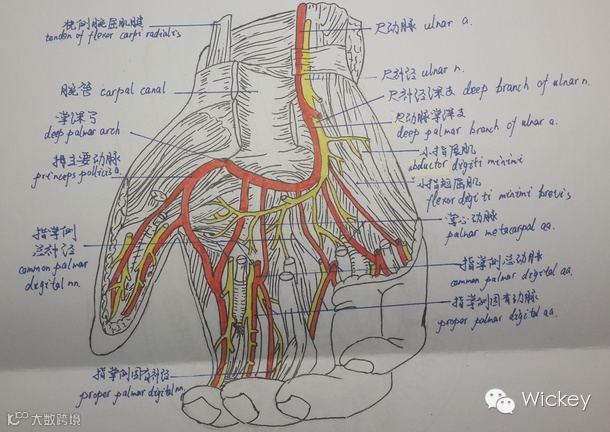 桡侧腕屈肌腱
tendon of flexor carpi radialis
腕管 carpal canal
掌深弓
deep palmar arch
拇主要动脉
princeps pollicis a.
指掌侧
总神经
common palmar
digital nn.
指掌侧固有神经
proper palmar digital nn.
尺动脉 ulnar a.
尺神经 ulnar n.
尺神经深支 deep branch of ulnar n.
尺动脉掌深支
deep palmar branch of ulnar a.
小指展肌
abductor digiti minimi
小指短屈肌
flexor digiti minimi brevis
掌心动脉
palmar metacarpal aa.
指掌侧总动脉
common palmar digital aa.
指掌侧固有动脉
proper palmar digital aa.
Wickey
大数跨境